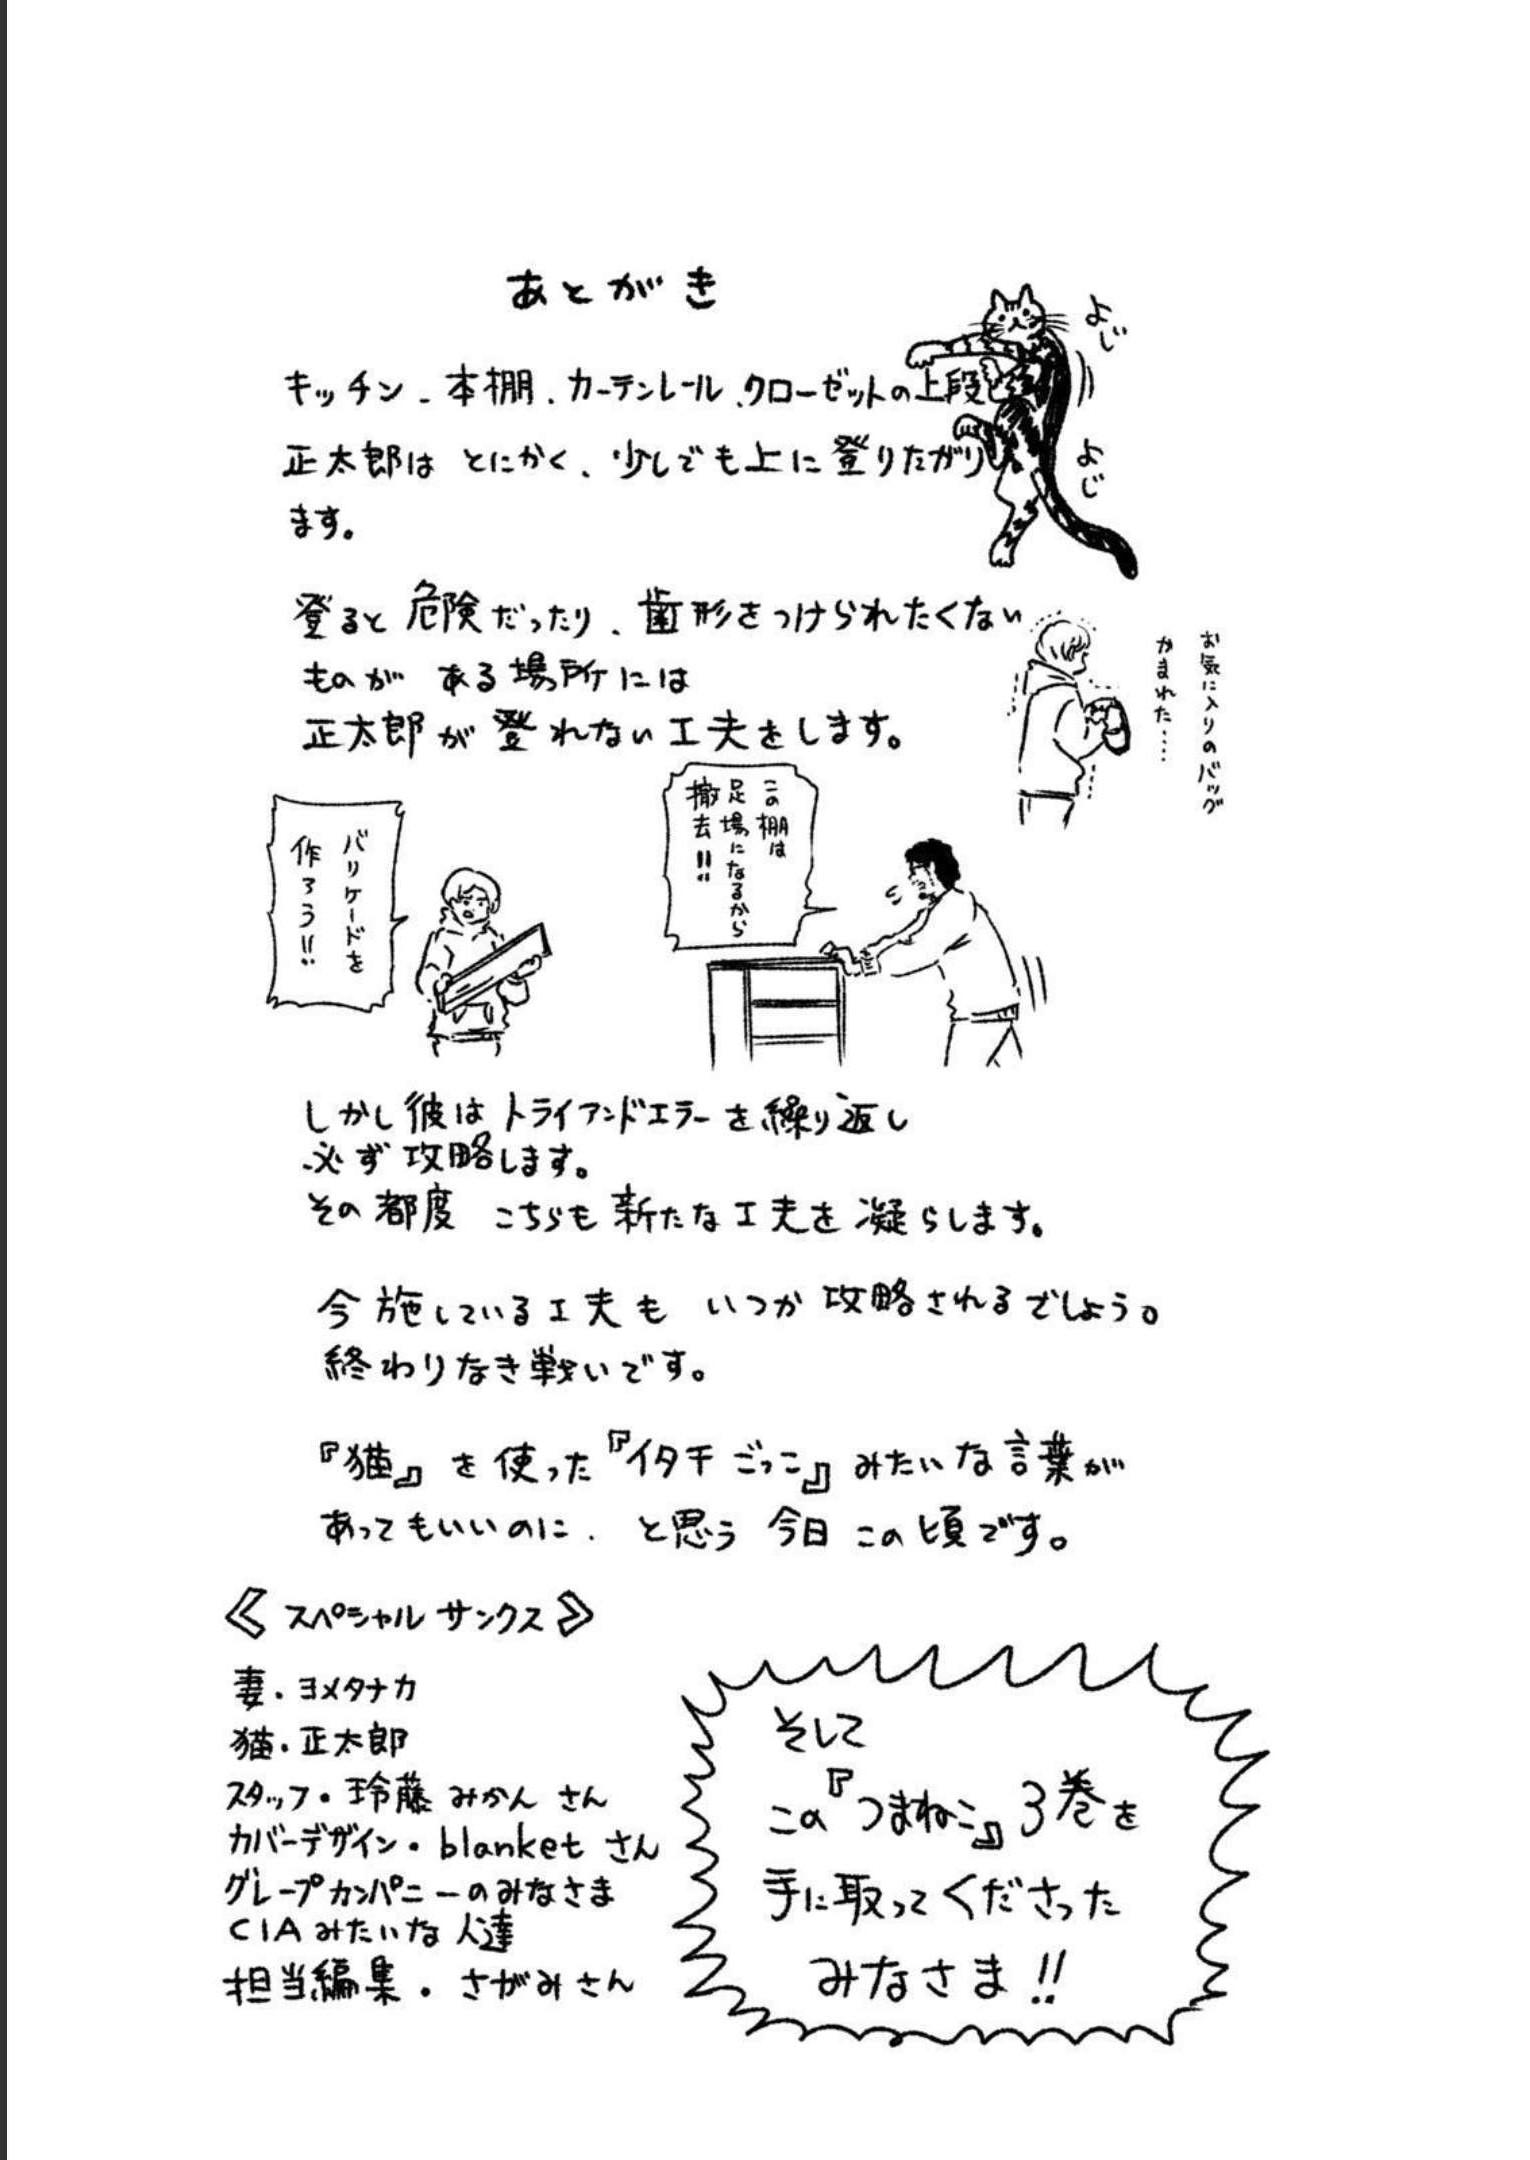 あとがき
よじ
よじ
キッチン、本棚、カーテンレール、クローゼットの上段と
正太郎は とにかく、少しでも上に登りたがり
ます。
登ると危険だったり、歯形をつけられたくない
ものが ある場所には
正太郎が登れない工夫をします。
お気に入りのバッグ
かまれた……
この棚は
足場になるから
撤去!!
バリケードを
作ろう!!
しかし彼はトライアンドエラーを繰り返し
必ず攻略します。
その都度 こちらも新たな工夫を凝らします。
今施している工夫も いつか攻略されるでしょう。
終わりなき戦いです。
『猫』を使った『イタチごっこ』みたいな言葉が
あってもいいのに、と思う 今日この頃です。
《スペシャルサンクス》
妻・ヨメタナカ
猫・正太郎
スタッフ・玲藤みかんさん
カバーデザイン・blanketさん
グレープカンパニーのみなさま
CIAみたいな人達
担当編集・さがみさん
そして
この『つまねこ』3巻を
手に取ってくださった
みなさま!!